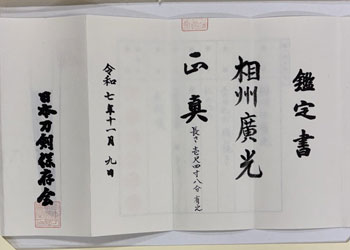 鑑定書
相州廣光
正真
長さ壱尺四寸八分有之
令和七年十一月九日
日本刀剣保存会